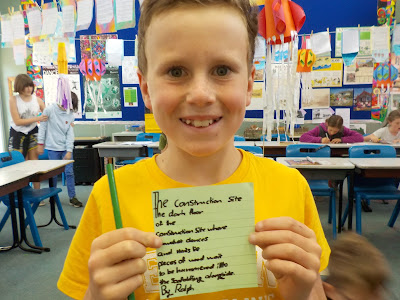 The Construction Site
The dark floor
of the
Construction site where
dances
and
pieces of wood wait
to be hammered into
the Scaffolding alongside.
By Ralph